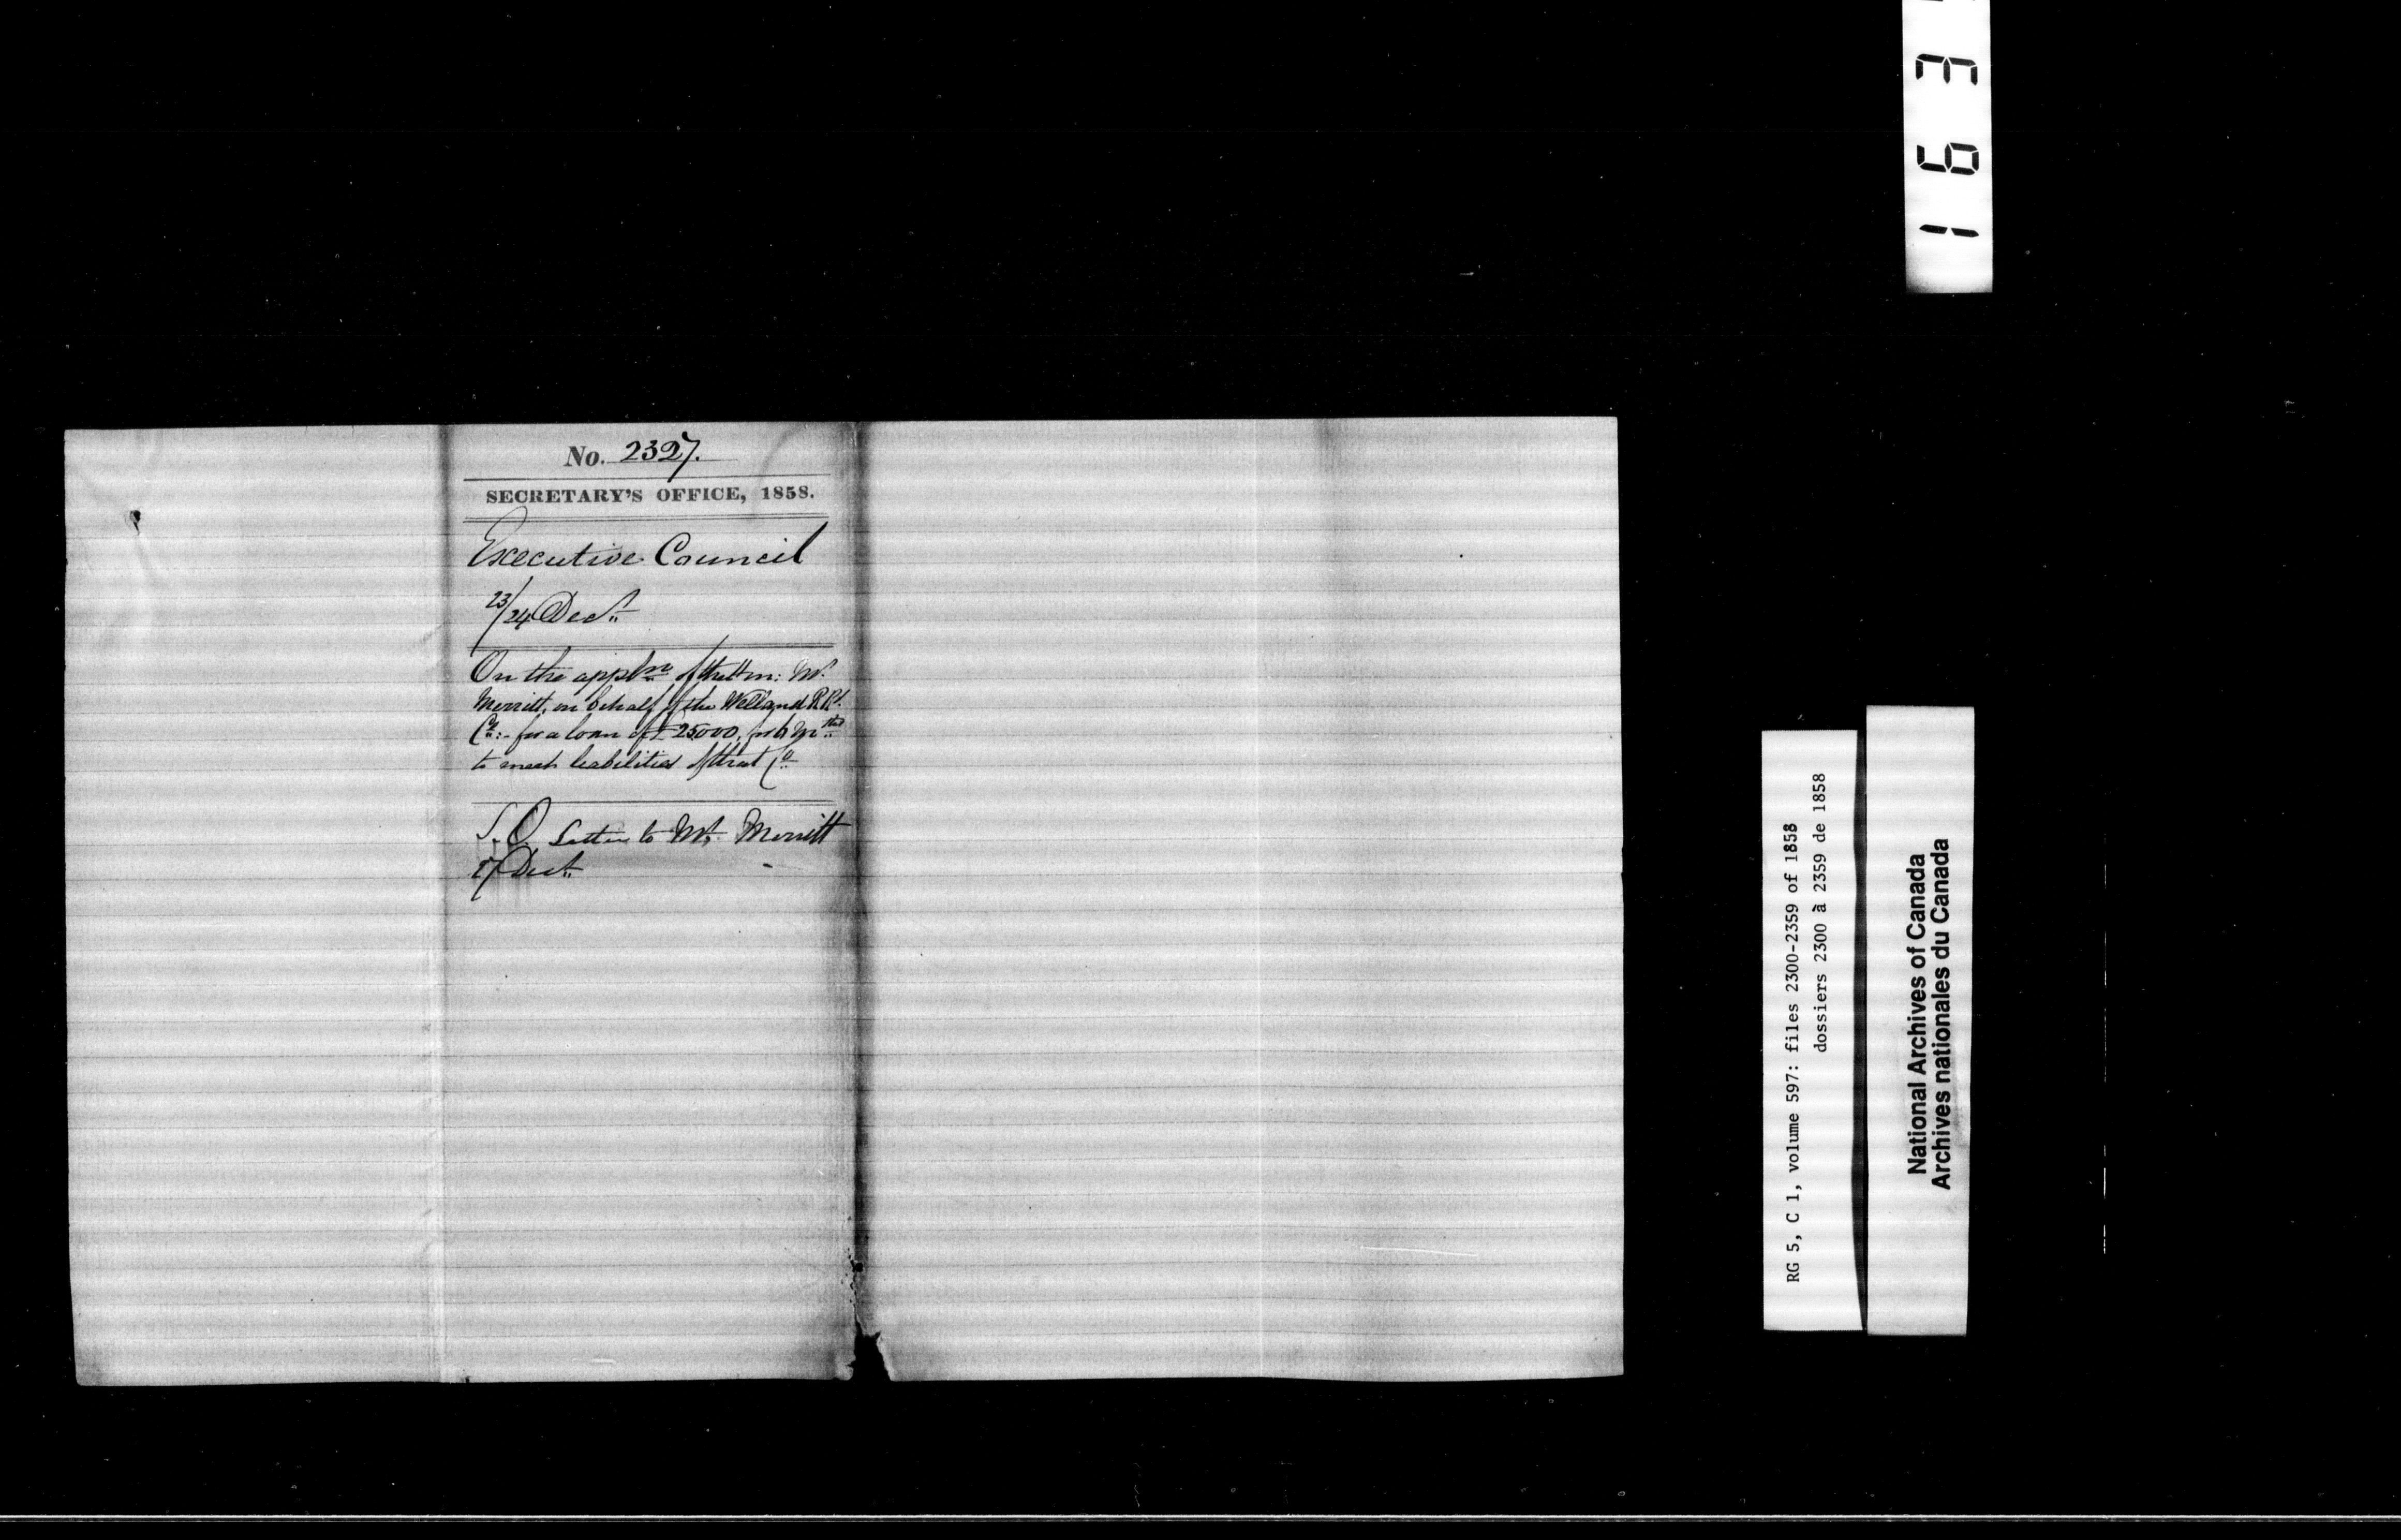 No. 2327.
SECRETARY'S OFFICE, 1858.
Executive Council
23/24 Decr.
On the appln. of the Hon: Mr.
Merritt, on behalf of the Welland R.Rd.
Co:- for a loan of £25000, for 6 Mths
to meet liabilities of that Co.
S.O. Letter to Mr. Merritt
27 Decr.
1 6 3
RG 5, C 1, volume 597: files 2300-2359 of 1858
dossiers 2300 à 2359 de 1858
National Archives of Canada
Archives nationales du Canada